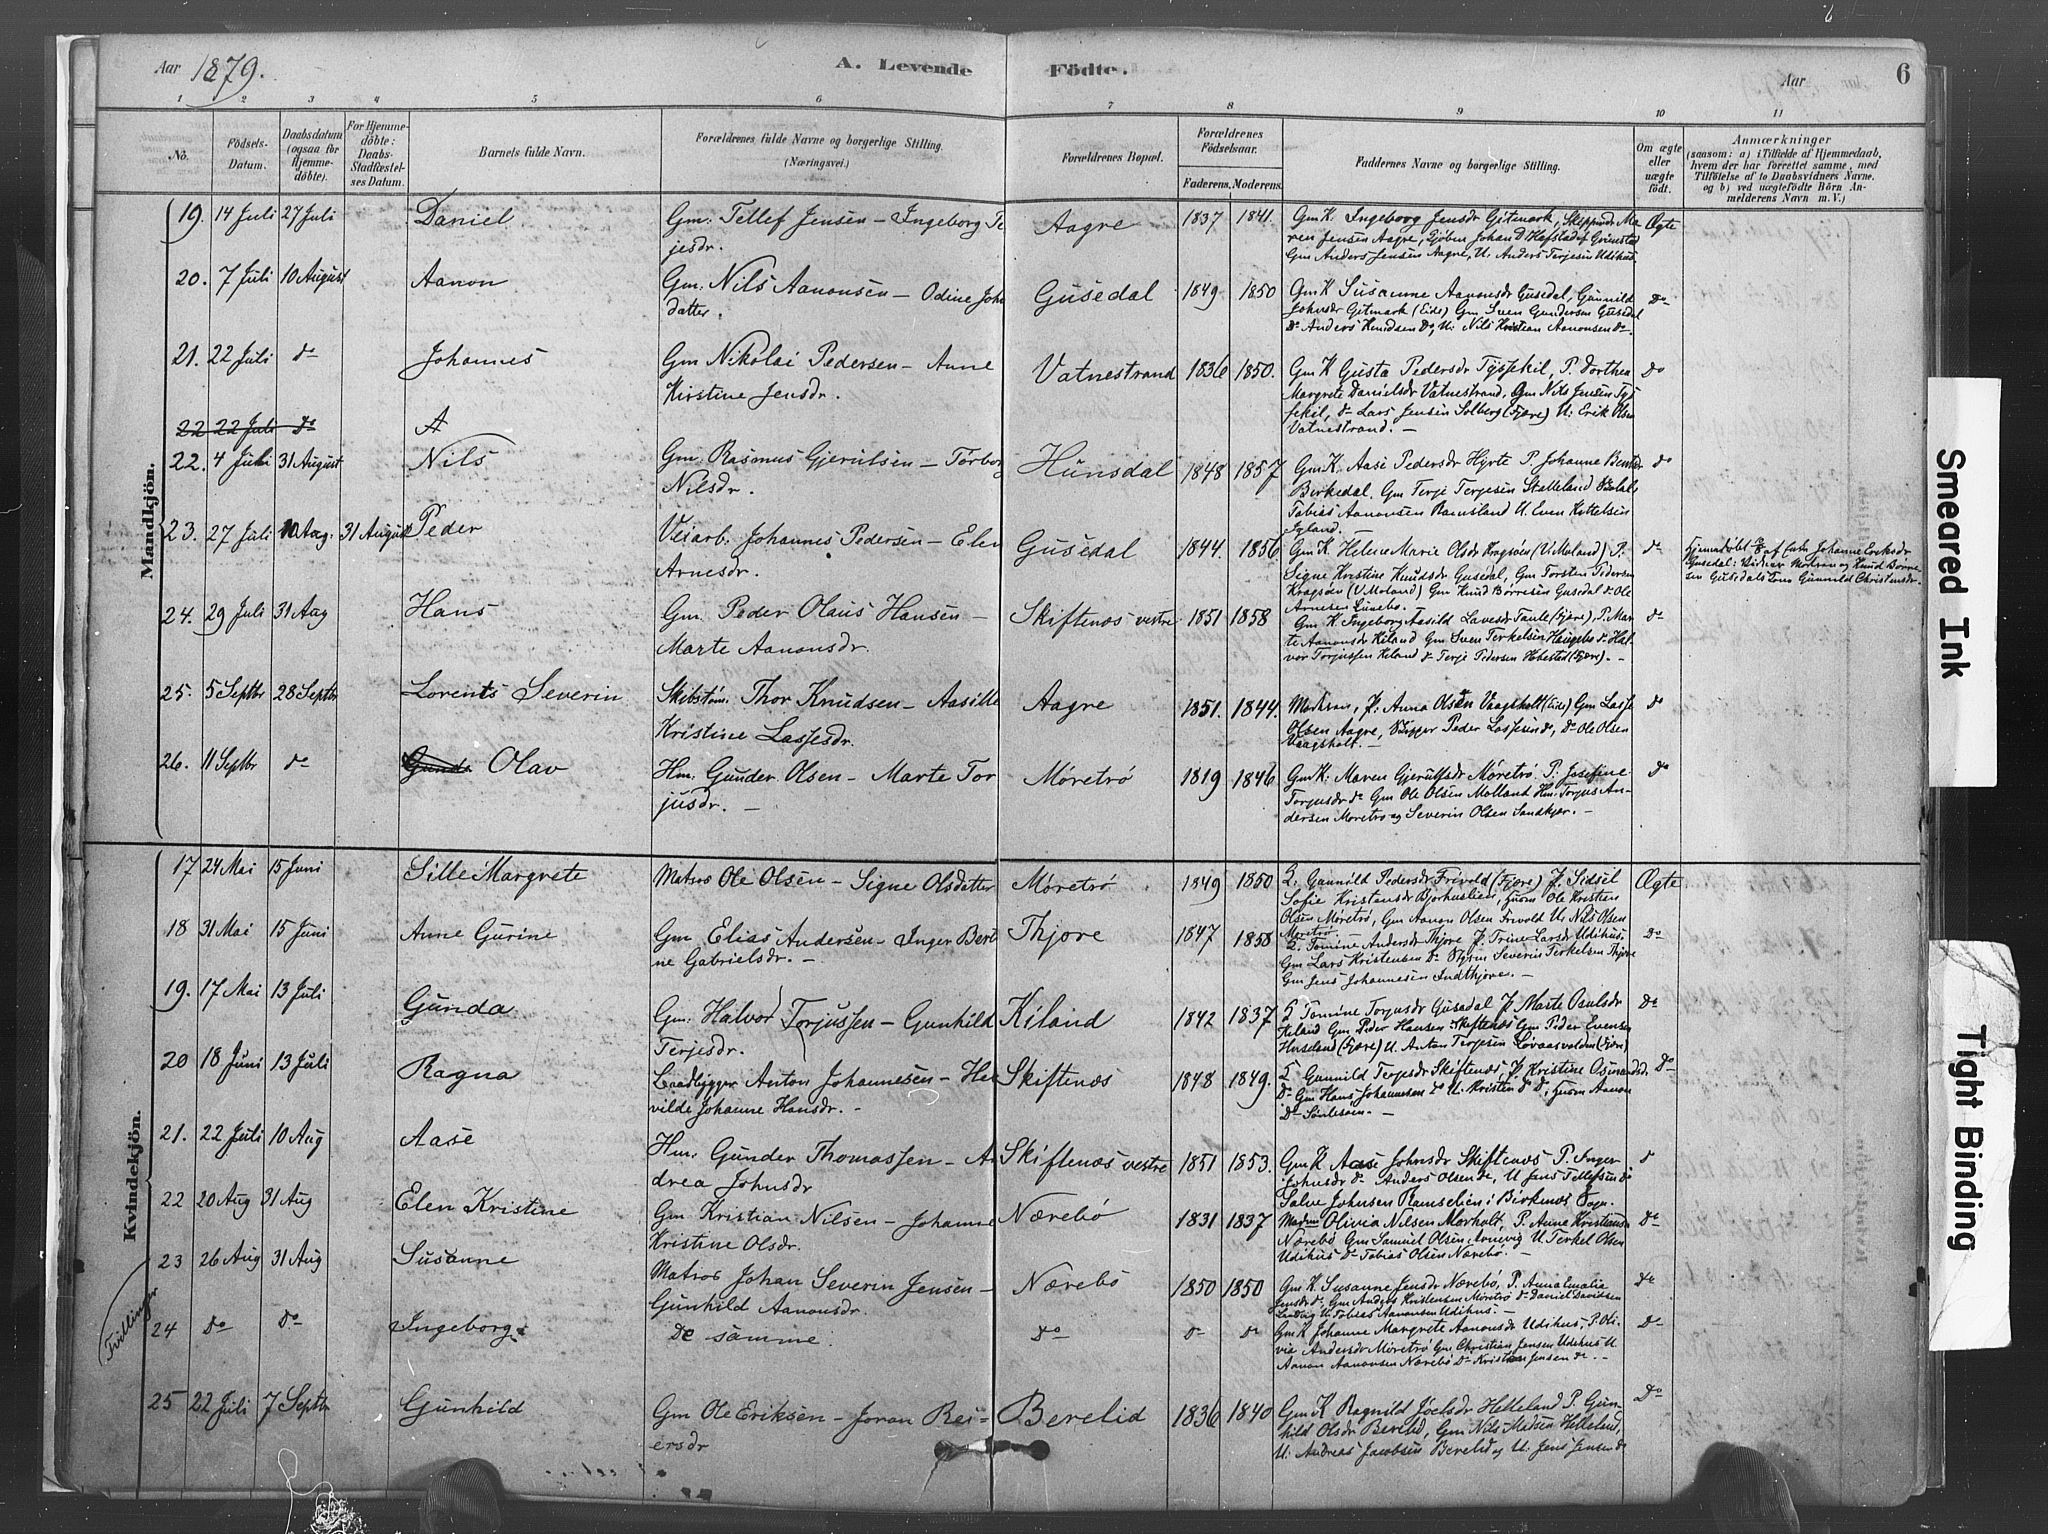 Aar 1879.
A. Levende Födte.
Aar
6
1 2 3 4 5 6 7 8 9 10 11
No.
Födsels-Datum.
Daabsdatum (ogsaa för Hjemmedöbte).
For Hjemmedöbte: Daabs-Stadfæstelses Datum.
Barnets fulde Navn.
Forældrenes fulde Navne og borgerlige Stilling. (Næringsvei.)
Forældrenes Bopæl.
Forældrenes Födselsaar.
Faderens. Moderens.
Faddernes Navne og borgerlige Stilling.
Om ægte eller uægte födt.
Anmærkninger
(saasom: a) i Tilfælde af Hjemmedaab, hvem der har forrettet samme, med Tilföielse af to Daabsvidners Navne. og b) ved uægtefödte Börn Anmelderens Navn m.V.)
Mandkjön.
19. 14 Juli 27 Juli Daniel Gm. Tellef Jensen – Ingeborg Terjesdr. Aagre 1837 1841. Gm K. Ingeborg Jensdr Gitmark, Skippersdr Maren Jensen Aagre, Gjöben Johan D. Hafstad af Grimstad Gm Anders Jensen Aagre, U. Anders Terjesen Udihus. Ægte
20. 7 Juli 10 August Aanon Gm. Nils Aanonsen – Odine Johnsdatter. Gusedal 1849 1850 Gm K Susanne Aanonsdr Gusedal, Gunnild Johnsdr Gitmark (Eide) Gm Sven Gundersen Gusedal Do Anders Knudsen Do, U. Nils Kristian Aanonsen do. do
21. 22 Juli do Johannes Gm Nikolai Pedersen – Anne Kirstine Jensdr. Vatnestrand 1836 1850. Gm K Gusta Pedersdr Tjsfekil, P. Dorthea Margrete Danielsdr Vatnestrand, Gm Nils Jensen Tjsfekil, do Lars Jensen Solberg (Fjære) U. Erik Olsen Vatnestrand. – do
22 22 Juli do A
22. 4 Juli 31 August Nils Gm. Rasmus Gjerulsen – Torborg Nilsdr. Hunsdal 1848 1857 Gm K. Aase Pedersdr Hyrte P. Johanne Birkedal, Gm Terje Terjesen Skatteland Tobias Aanonsen Ramsland U. Even Kittelsen Igland. do
23. 27 Juli 10 Aug: 31 August Peder Veiarb. Johannes Pedersen – Elen Arnesdr. Gusedal 1844. 1856 Gm K. Helene Marie Olsdr Kragsöen (V. Moland) P. Signe Kristine Knudsdr Gusedal, Gm Torsten Pedersen Kragsöen (V. Moland) Gm Knud Börresen Gusedal do Ole Arnesen Lunebo. do Hjemmedöbt af Johanne Eriksdr Gusedal: Vidner Modren og Knud Börresen Gusedal Gunnild Christensdr.
24. 29 Juli 31 Aug Hans Gm. Peder Olaus Hansen – Marte Aanonsdr. Skiftenæs vestre 1851 1858 Gm K Ingeborg Aasild Lavesdr Taule (Fjære), P. Marte Aanonsdr Kiland Gm Sven Terkelsen Haugebo do Halvor Torjussen Kiland do Terje Pedersen Hobested (Fjære). – do
25. 5 Septbr 28 Septbr Lorents Severin Skibstöm: Thor Knudsen – Aasille Kristine Lassesdr. Aagre 1851. 1844. Modren, P. Anna Olsen Vaagsholt (Eide) Gm Lasse Olsen Aagre, Skipper Peder Lassesen do, do Ole Olsen Vaagsholt. – do
26. 11 Septbr do Gunde Olav Hm. Gunder Olsen – Marte Torjusdr. – Möretrö 1819 1846 Gm K. Maren Gjerulfsdr Möretrö. P. Josefine Torjusdr do Gm Ole Olsen Molland Hm: Torjus Andersen Möretrö og Severin Olsen Sandkjær. – do
Kvindekjön.
17 24 Mai 15 Juni Sille Margrete Matros Ole Olsen – Signe Olsdatter Möretrö 1849 1850 2. Gunnild Pedersdr Frivold (Fjære) P. Sidsel Sofie Kristensdr Bjorhuslien, Gm Ole Kristian Olsen Möretrö, Gm Aanon Olsen Frivold U. Nils Olsen Möretrö. Ægte
18 31 Mai 15 Juni Anne Gurine Gm Elias Andersen – Inger Bertine Gabrielsdr. – Thjore 1847 1858 2. Tomine Andersdr Thjore P. Trine Larsdr Udihus, Gm Lars Kristensen Do Styrm Severin Terkelsen Thjore Gm Jens Johannesen Indthjore. – Do
19. 17 Mai 13 Juli Gunda Gm. Halvor Torjussen – Gunhild Terjesdr. Kiland 1842 1837 2 Tomine Torjusdr Gusedal P Marte Osulsdr Kiland Gm Peder Hansen Skiftenæs Gm Peder Evensen Huseland (Fjære) U. Anton Terjesen Lövaasvolden (Fjære) Do
20 18 Juni 13 Juli Ragna Baadbygger Anton Johannesen – Helvilde Johanne Hansdr. – Skiftenæs 1848 1849. 2 Gunnild Terjesdr Skiftenæs, P Kristine Osmundsd. Do Gm Hans Johannesen do U. Kristen do Do, Gm Aanon Do Sönlesöen. – Do
21. 22 Juli 10 Aug Aase Hm. Gunder Thomassen – Andrea Johnsdr Skiftenæs vestre 1851 1853. Gm K. Aase Johnsdr Skiftenæs P. Inger Johnsdr do Anders Olsen do, U Jens Tellefsen do Salve Johnsen Ramselien i Birkenæs Sogn. d
22 20 Aug 31 Aug Elen Kristine Gm Kristian Nilsen – Johanne Kristine Olsdr. Nærebö 1831 1837 Madm Olivia Nilsen Morholt, P. Anna Kristiansd Nærebö Gm Samuel Olsen Arnevig U. Terkel Olsen Udihus do Tobias Olsen Nærebö. – Do
Tvillinger
23 26 Aug 31 Aug Susanne Matros Johan Severin Jensen – Gunhild Aanonsdr. Nærebö 1850 1850 Gm K. Susanne Jensdr Nærebö, P. Anna Emalia Jensdr do, Gm Anders Kristensen Möretrö do Daniel Davidsen U. Tobias Aanonsen Udihus. – do
24 do do Ingeborg. De samme. do do do Gm K Johanne Margrete Aanonsdr Udihus, P. Olivie Andersdr Möretrö Gm Christian Jensen Udihus U. Aanon Aanonsen Nærebö Do Kristen Jensen do. – Do
25 22 Juli 7 Septbr Gunhild Gm Ole Eriksen – Joran Reiersdr Berelid 1836 1840 Gm K Ragnild Joelsdr Helleland P. Gunhild Olsdr Berelid, Gm Nils Madsen Helleland, U. Andreas Jacobsen Berelid og U. Jens Jensen do Do
Smeared Ink
Tight Binding